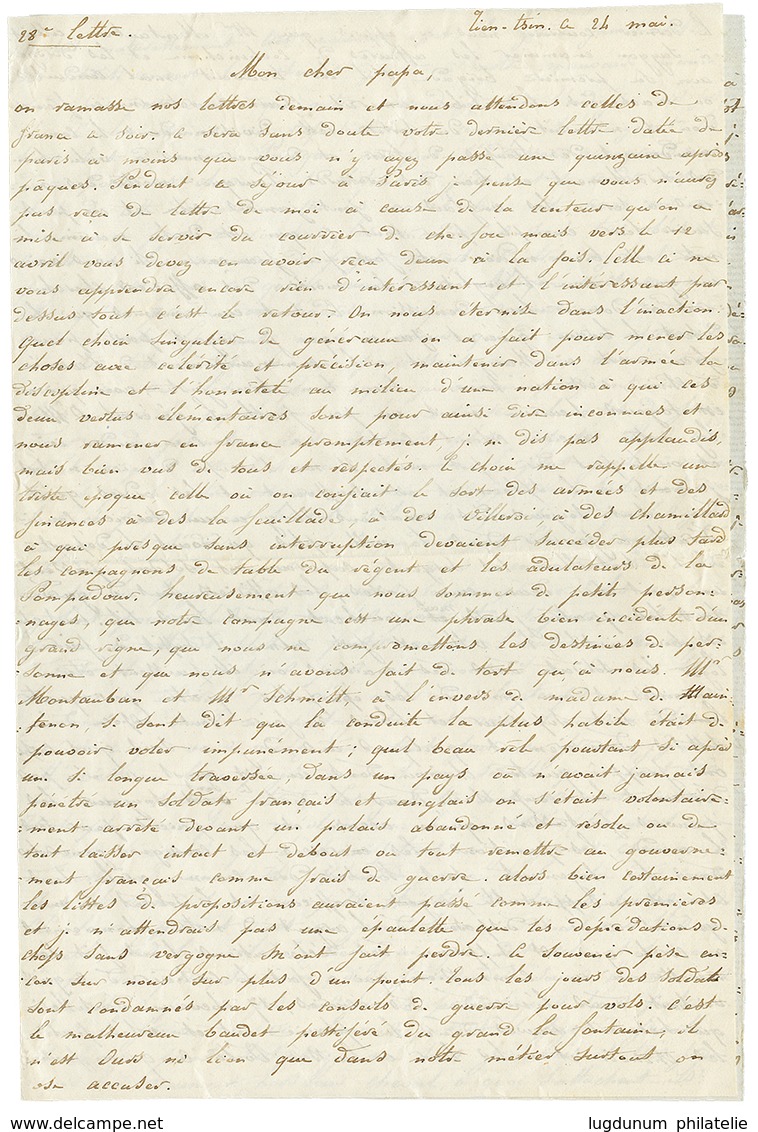 28e lettre. Tien-tsin. le 24 mai.
Mon cher papa,
on ramasse nos lettres demain et nous attendons celles de
france ce soir. ce sera sans doute votre dernière lettre datée de
paris à moins que vous n'y ayez passé une quinzaine après
pâques. Pendant ce séjour à Paris je pense que vous n'aurez
pas reçu de lettre de moi à cause de la lenteur qu'on a
mise à se servir du courrier de che-fou mais vers le 12
avril vous devez en avoir reçu deux à la fois. Celle ci ne
vous apprendra encore rien d'intéressant et l'intéressant par
dessus tout c'est le retour. On nous éternise dans l'inaction.
Quel choix singulier de généraux on a fait pour mener les
choses avec célérité et précision, maintenir dans l'armée la
discipline et l'honnêteté au milieu d'une nation à qui ces
deux vertus élémentaires sont pour ainsi dire inconnues et
nous ramener en france promptement, je ne dis pas applaudis,
mais bien vus de tous et respectés. Ce choix me rappelle une
triste époque celle où on confiait le sort des armées et des
finances à des la feuillade, à des Villeroi, à des chamillard
à qui presque sans interruption devaient succéder plus tard
les compagnons de table du régent et les adulateurs de la
Pompadour. heureusement que nous sommes de petits person-
nages, que notre campagne est une phrase bien incidente d'un
grand règne, que nous ne compromettons les destinées de per-
sonne et que nous n'avons fait de tort qu'à nous. Mr
Montauban et Mr Schmitt, à l'envers de madame de Main-
tenon, se sont dit que la conduite la plus habile était de
pouvoir voler impunément; quel beau rôle pourtant si après
une si longue traversée, dans un pays où n'avait jamais
pénétré un soldat français et anglais on s'était volontaire-
ment arrêté devant un palais abandonné et résolu ou de
tout laisser intact et debout ou tout remettre au gouverne-
ment français comme frais de guerre. alors bien certainement
les listes de propositions auraient passé comme les premières
et je n'attendrais pas une épaulette que les déprédations de
chefs sans vergogne m'ont fait perdre. Ce souvenir pèse en-
core sur nous sur plus d'un point. tous les jours des soldats
sont condamnés par les conseils de guerre pour vols. c'est
le malheureux baudet pestiféré du grand la fontaine, il
n'est ours ni lion que dans notre métier surtout on
ose accuser.
delcampe.net lugdunum philatelie